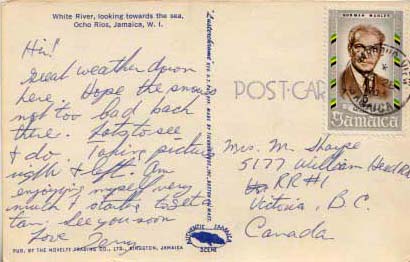 White River, looking towards the sea,
Ocho Rios, Jamaica, W. I.
Hi!
Great weather down
here. Hope the snows
not too bad back
there. Lots to see
& do. Taking pictures
right & left. Am
enjoying myself very
much & starting to get a
tan. See you soon
Love Terry
PUB. BY THE NOVELTY TRADING CO., LTD., KINGSTON, JAMAICA
"Lusterchrome"
AUTHENTIC JAMAICA
SCENE
POST CAR
NORMAN MANLEY
Jamaica
Mrs. M. Sharpe
5177 William Head Rd
RR#1
Victoria, B.C.
Canada